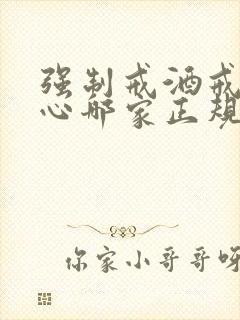 强制戒酒戒
心哪家正规
你家小哥哥呀